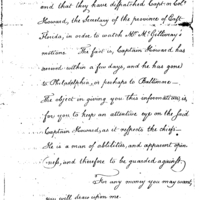 and that they have despatched Capt. or Col.
Howard, the Secretary of the province of East
Florida, in order to watch Mr. McGillivray's
motions. The fact is, Captain Howard has
arrived within a few days, and he has gone
to Philadelphia, or perhaps to Baltimore.
The object in giving you this information, is,
for you to keep an attentive eye on the said
Captain Howard, as it respects the chiefs.
He is a man of abilities, and apparent open-
ness, and therefore to be guarded against.
For any money you may want,
you will draw upon me.